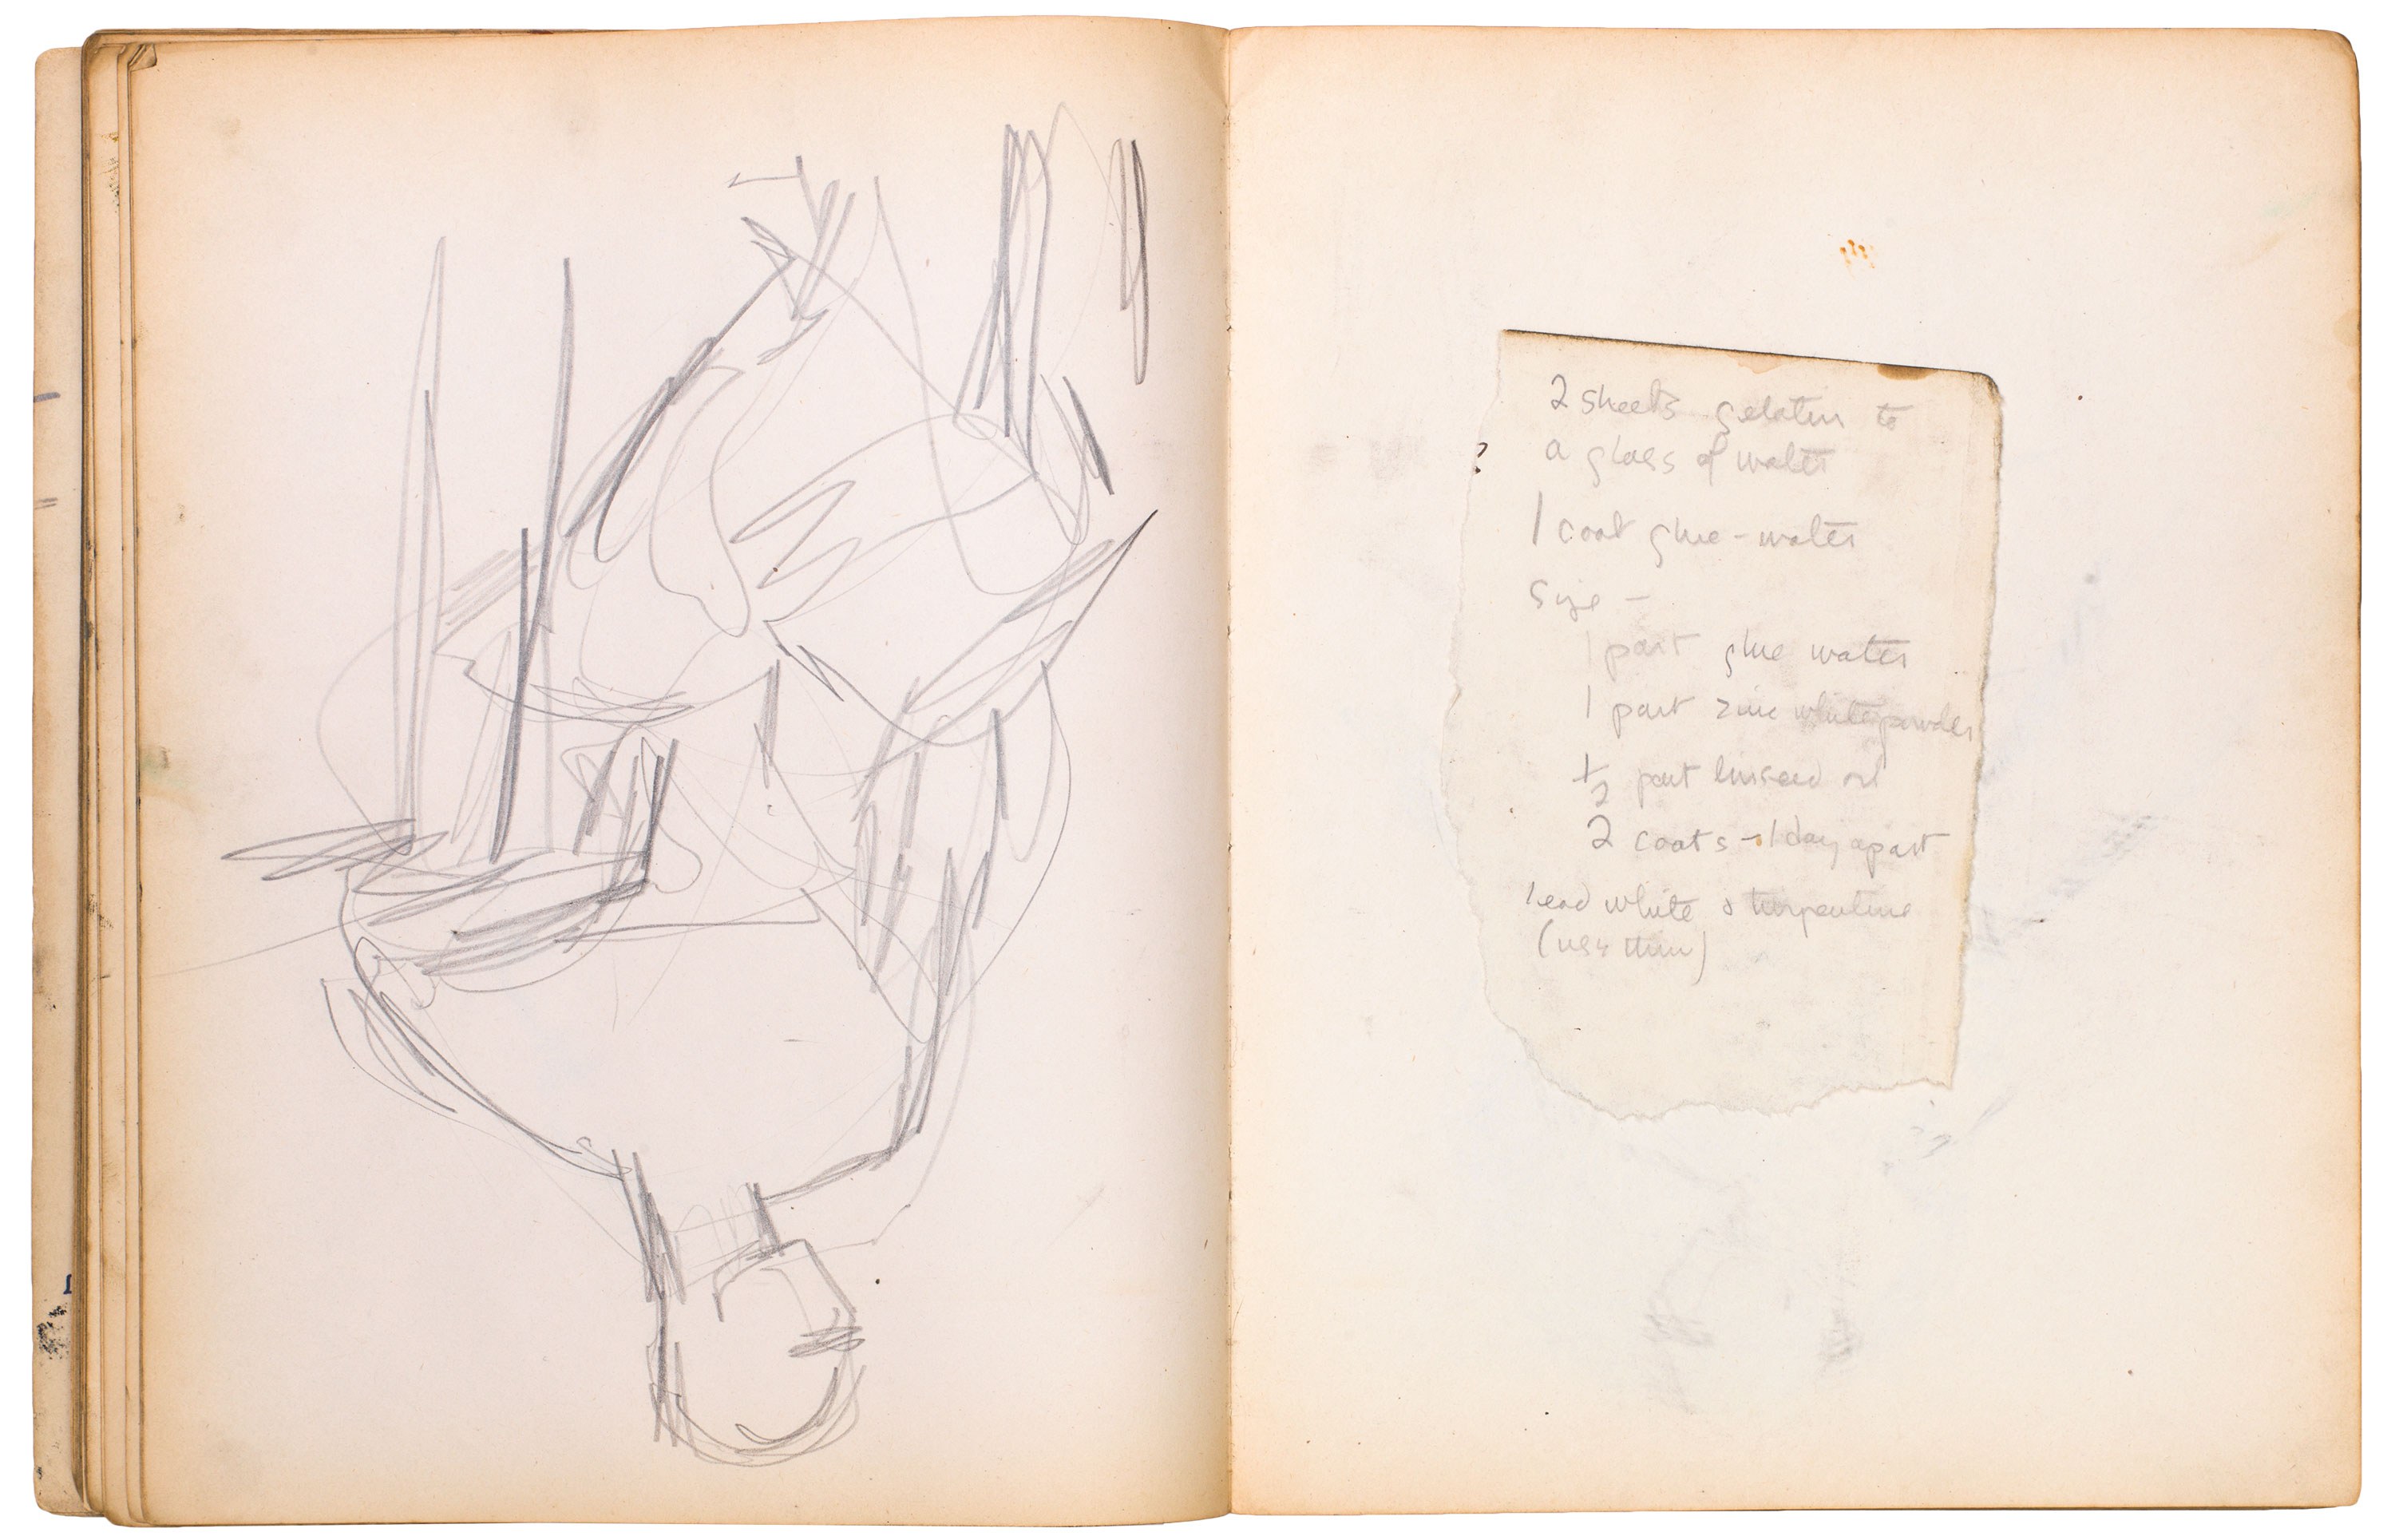 2 sheets gelatin to
a glass of water
1 coat glue-water
Size -
1 part glue water
1 part zinc white powder
1/2 part linseed oil
2 coats - 1 day apart
lead white & turpentine
( thin)